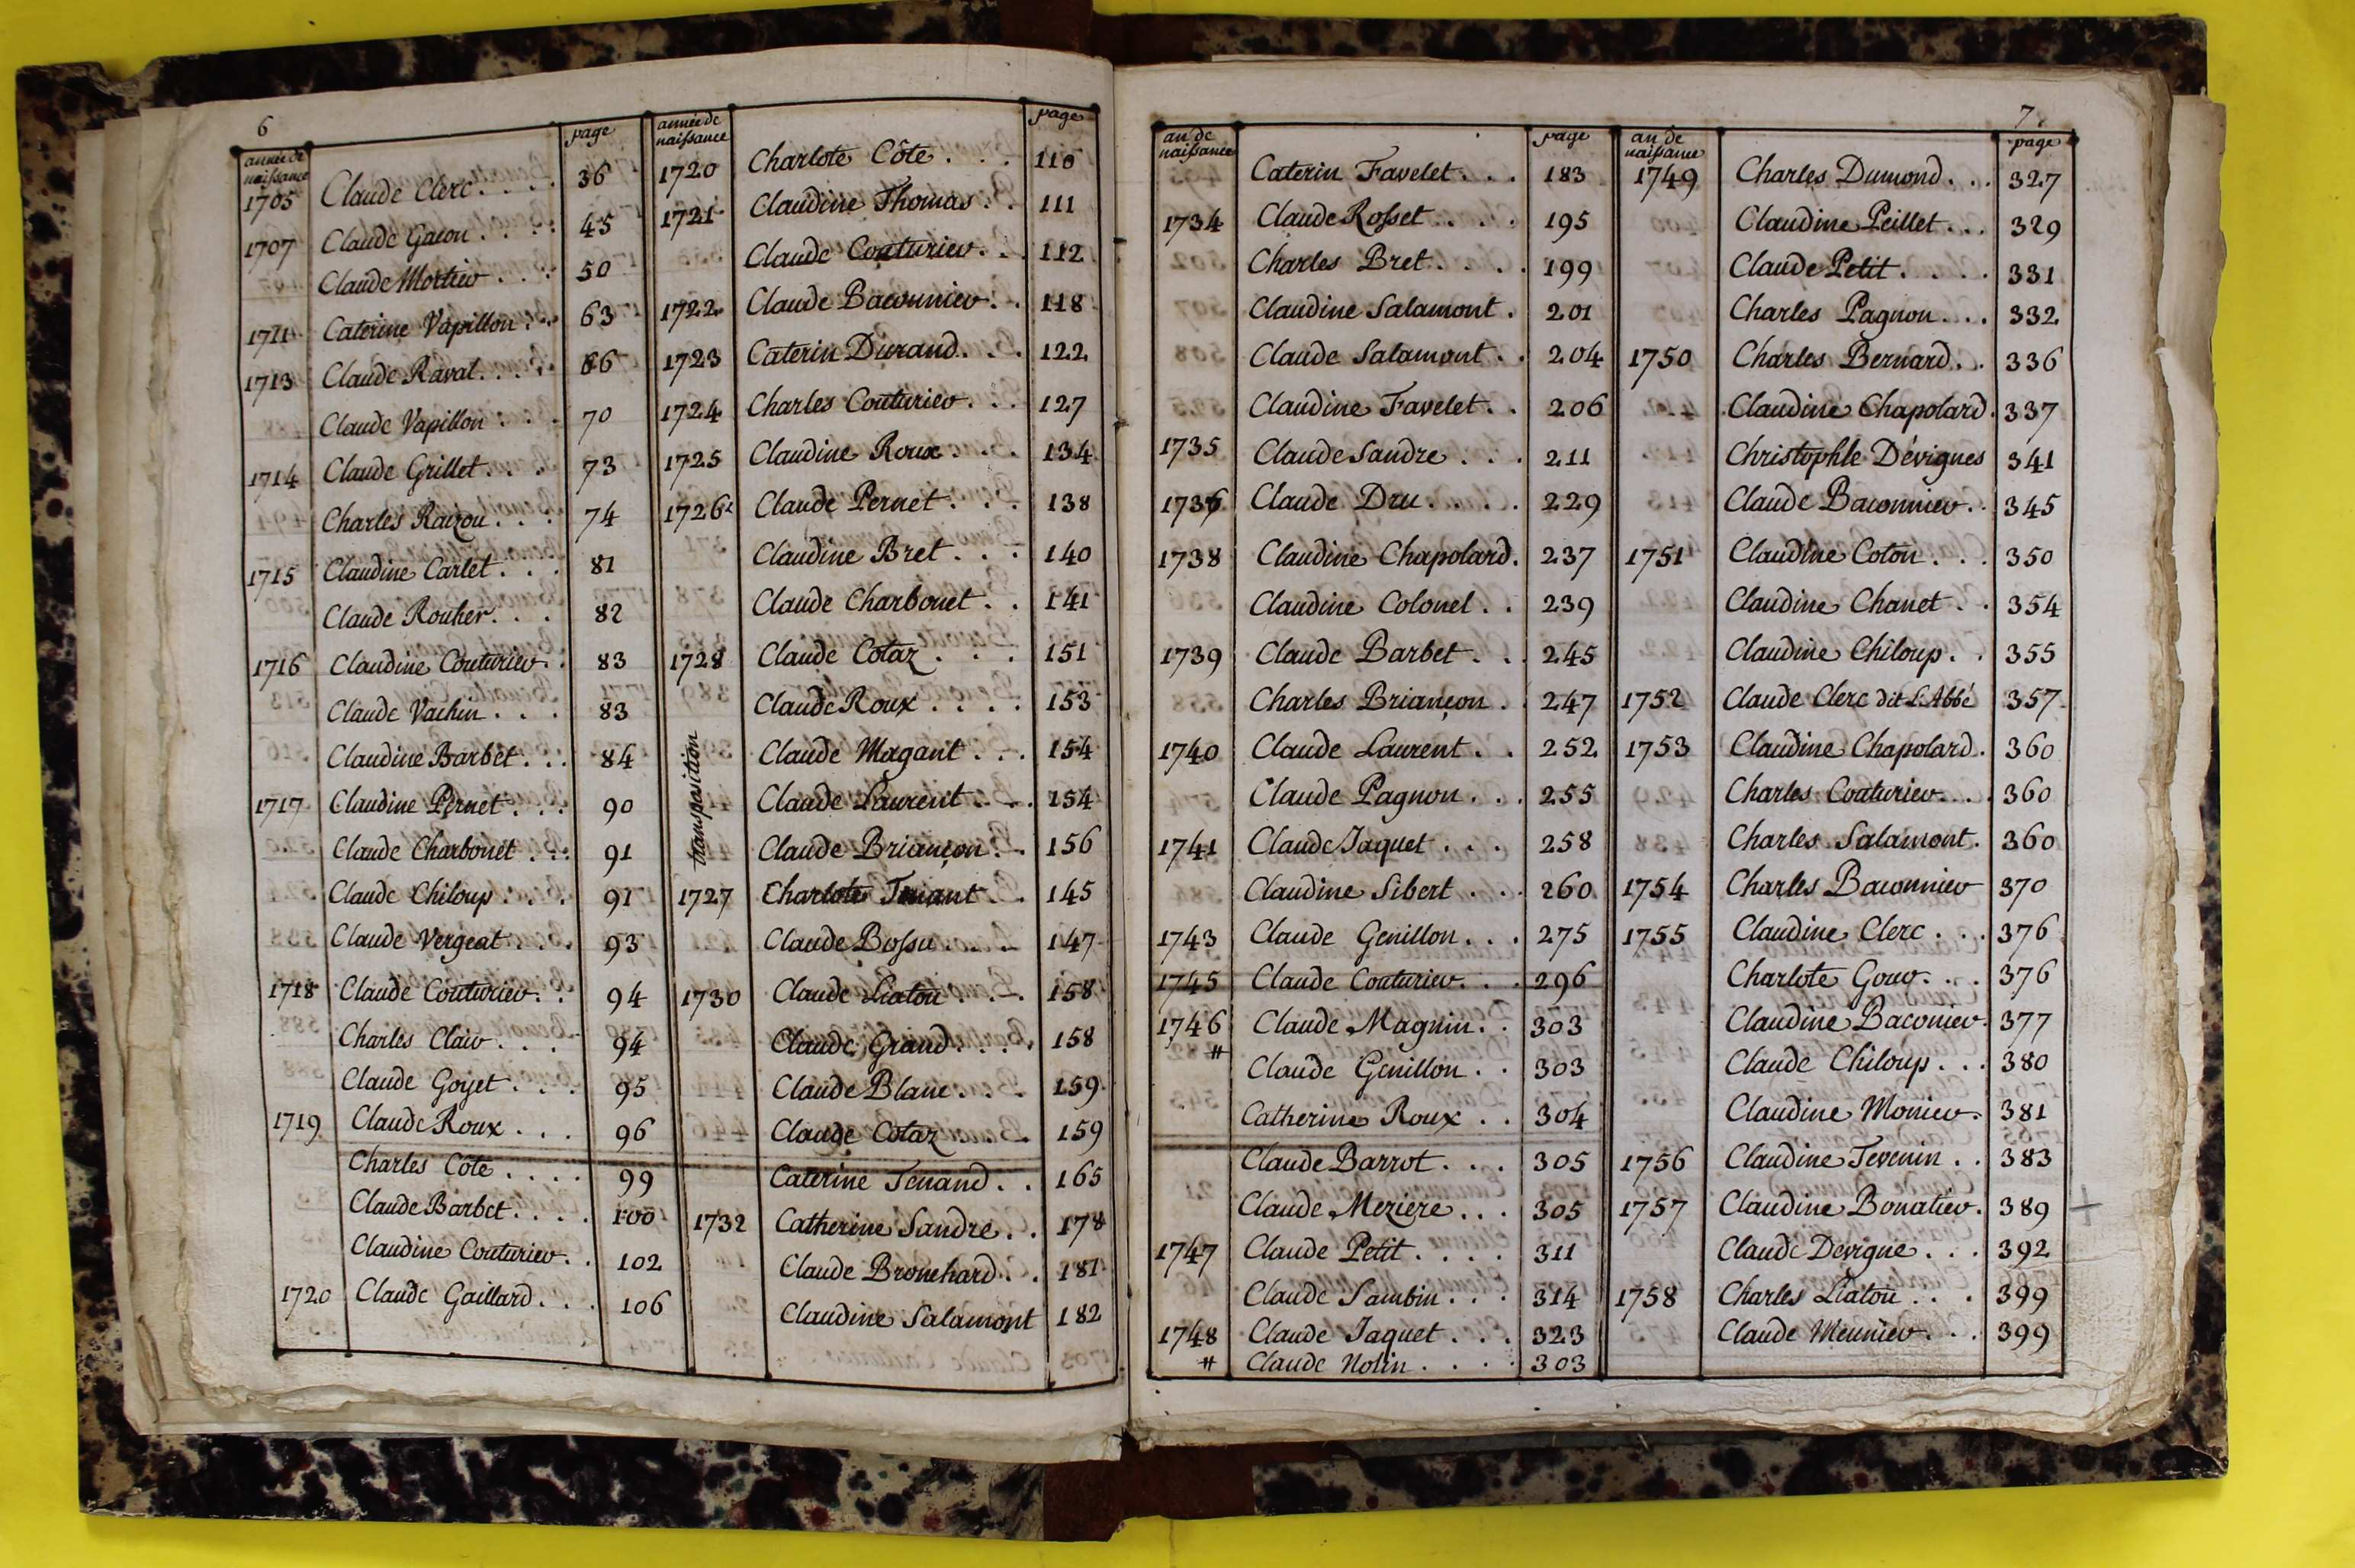 6
année de naissance page
1705 Claude Clerc . . . . 36
1707 Claude Gacon . . . . 45
Claude Mortier . . . 50
1711 Caterine Vapillon . . 63
1713 Claude Raval . . . . 66
Claude Vapillon . . . 70
1714 Claude Grillet . . . 73
Charles Ravzou . . . 74
1715 Claudine Carlet . . . 81
Claude Rouher . . . 82
1716 Claudine Couturier . . 83
Claude Vachin . . . 83
Claudine Barbet . . . 84
1717 Claudine Pernet . . . 90
Claude Charbonet . . . 91
Claude Chiloup . . . 91
Claude Vergeat . . . 93
1718 Claude Couturier . . 94
Charles Clair . . . 94
Claude Goyet . . . 95
1719 Claude Roux . . . 96
Charles Côte . . . . 99
Claude Barbet . . . . 100
Claudine Couturier . . 102
1720 Claude Gaillard . . . 106
année de naissance page
1720 Charlote Côte . . . 110
1721 Claudine Thomas . . 111
Claude Couturier . . 112
1722 Claude Baconnier . . 118
1723 Caterin Durand . . . 122
1724 Charles Couturier . . . 127
1725 Claudine Roux . . . 134
1726 Claude Pernet . . . 138
Claudine Bret . . . 140
Claude Charbonet . . 141
1728 Claude Cotaz . . . 151
Claude Roux . . . . 153
transposition
Claude Magant . . . 154
Claude Laurent . . . 154
Claude Briançon . . 156
1727 Charlote Tenant . . 145
Claude Bossu . . . 147
1730 Claude Liaton . . . 158
Claude Grand . . . . 158
Claude Blanc . . . 159
Claude Cotaz . . . 159
Caterine Tenand . . 165
1732 Catherine Sandre . . 178
Claude Brouchard . . 181
Claudine Salamont 182
7
an de naissance page
Caterin Favelet . . . 183
1734 Claude Rosset . . . 195
Charles Bret . . . . 199
Claudine Salamont . 201
Claude Salamont . . 204
Claudine Favelet . . 206
1735 Claude Sandre . . . 211
1736 Claude Dru . . . . 229
1738 Claudine Chapolard . 237
Claudine Colonel . . 239
1739 Claude Barbet . . . 245
Charles Briançon . 247
1740 Claude Laurent . . 252
Claude Pagnon . . . 255
1741 Claude Jaquet . . . 258
Claudine Sibert . . . 260
1743 Claude Genillon . . . 275
1745 Claude Couturier . . . 296
1746 Claude Magnin . . 303
# Claude Genillon . . 303
Catherine Roux . . 304
Claude Barrot . . . 305
Claude Meziere . . . 305
1747 Claude Petit . . . . 311
Claude Sambin . . . 314
1748 Claude Jaquet . . . 323
# Claude Nolin . . . . 303
an de naissance page
1749 Charles Dumond . . . 327
Claudine Peillet . . . 329
Claude Petit . . . . 331
Charles Pagnon . . . 332
1750 Charles Bernard . . . 336
Claudine Chapolard . 337
Christophle Dévignes 341
Claude Baconnier . . 345
1751 Claudine Coton . . . 350
Claudine Chanet . . 354
Claudine Chiloup . . 355
1752 Claude Clerc dit L'Abbé 357
1753 Claudine Chapolard . 360
Charles Couturier . . . 360
Charles Salamont . 360
1754 Charles Baconnier 370
1755 Claudine Clerc . . . 376
Charlote Gour . . . 376
Claudine Baconier . 377
Claude Chiloup . . . 380
Claudine Monier . 381
1756 Claudine Tevenin . . 383
1757 Claudine Bonatier . 389 +
Claude Devigne . . . 392
1758 Charles Liaton . . . 399
Claude Meunier . . . 399